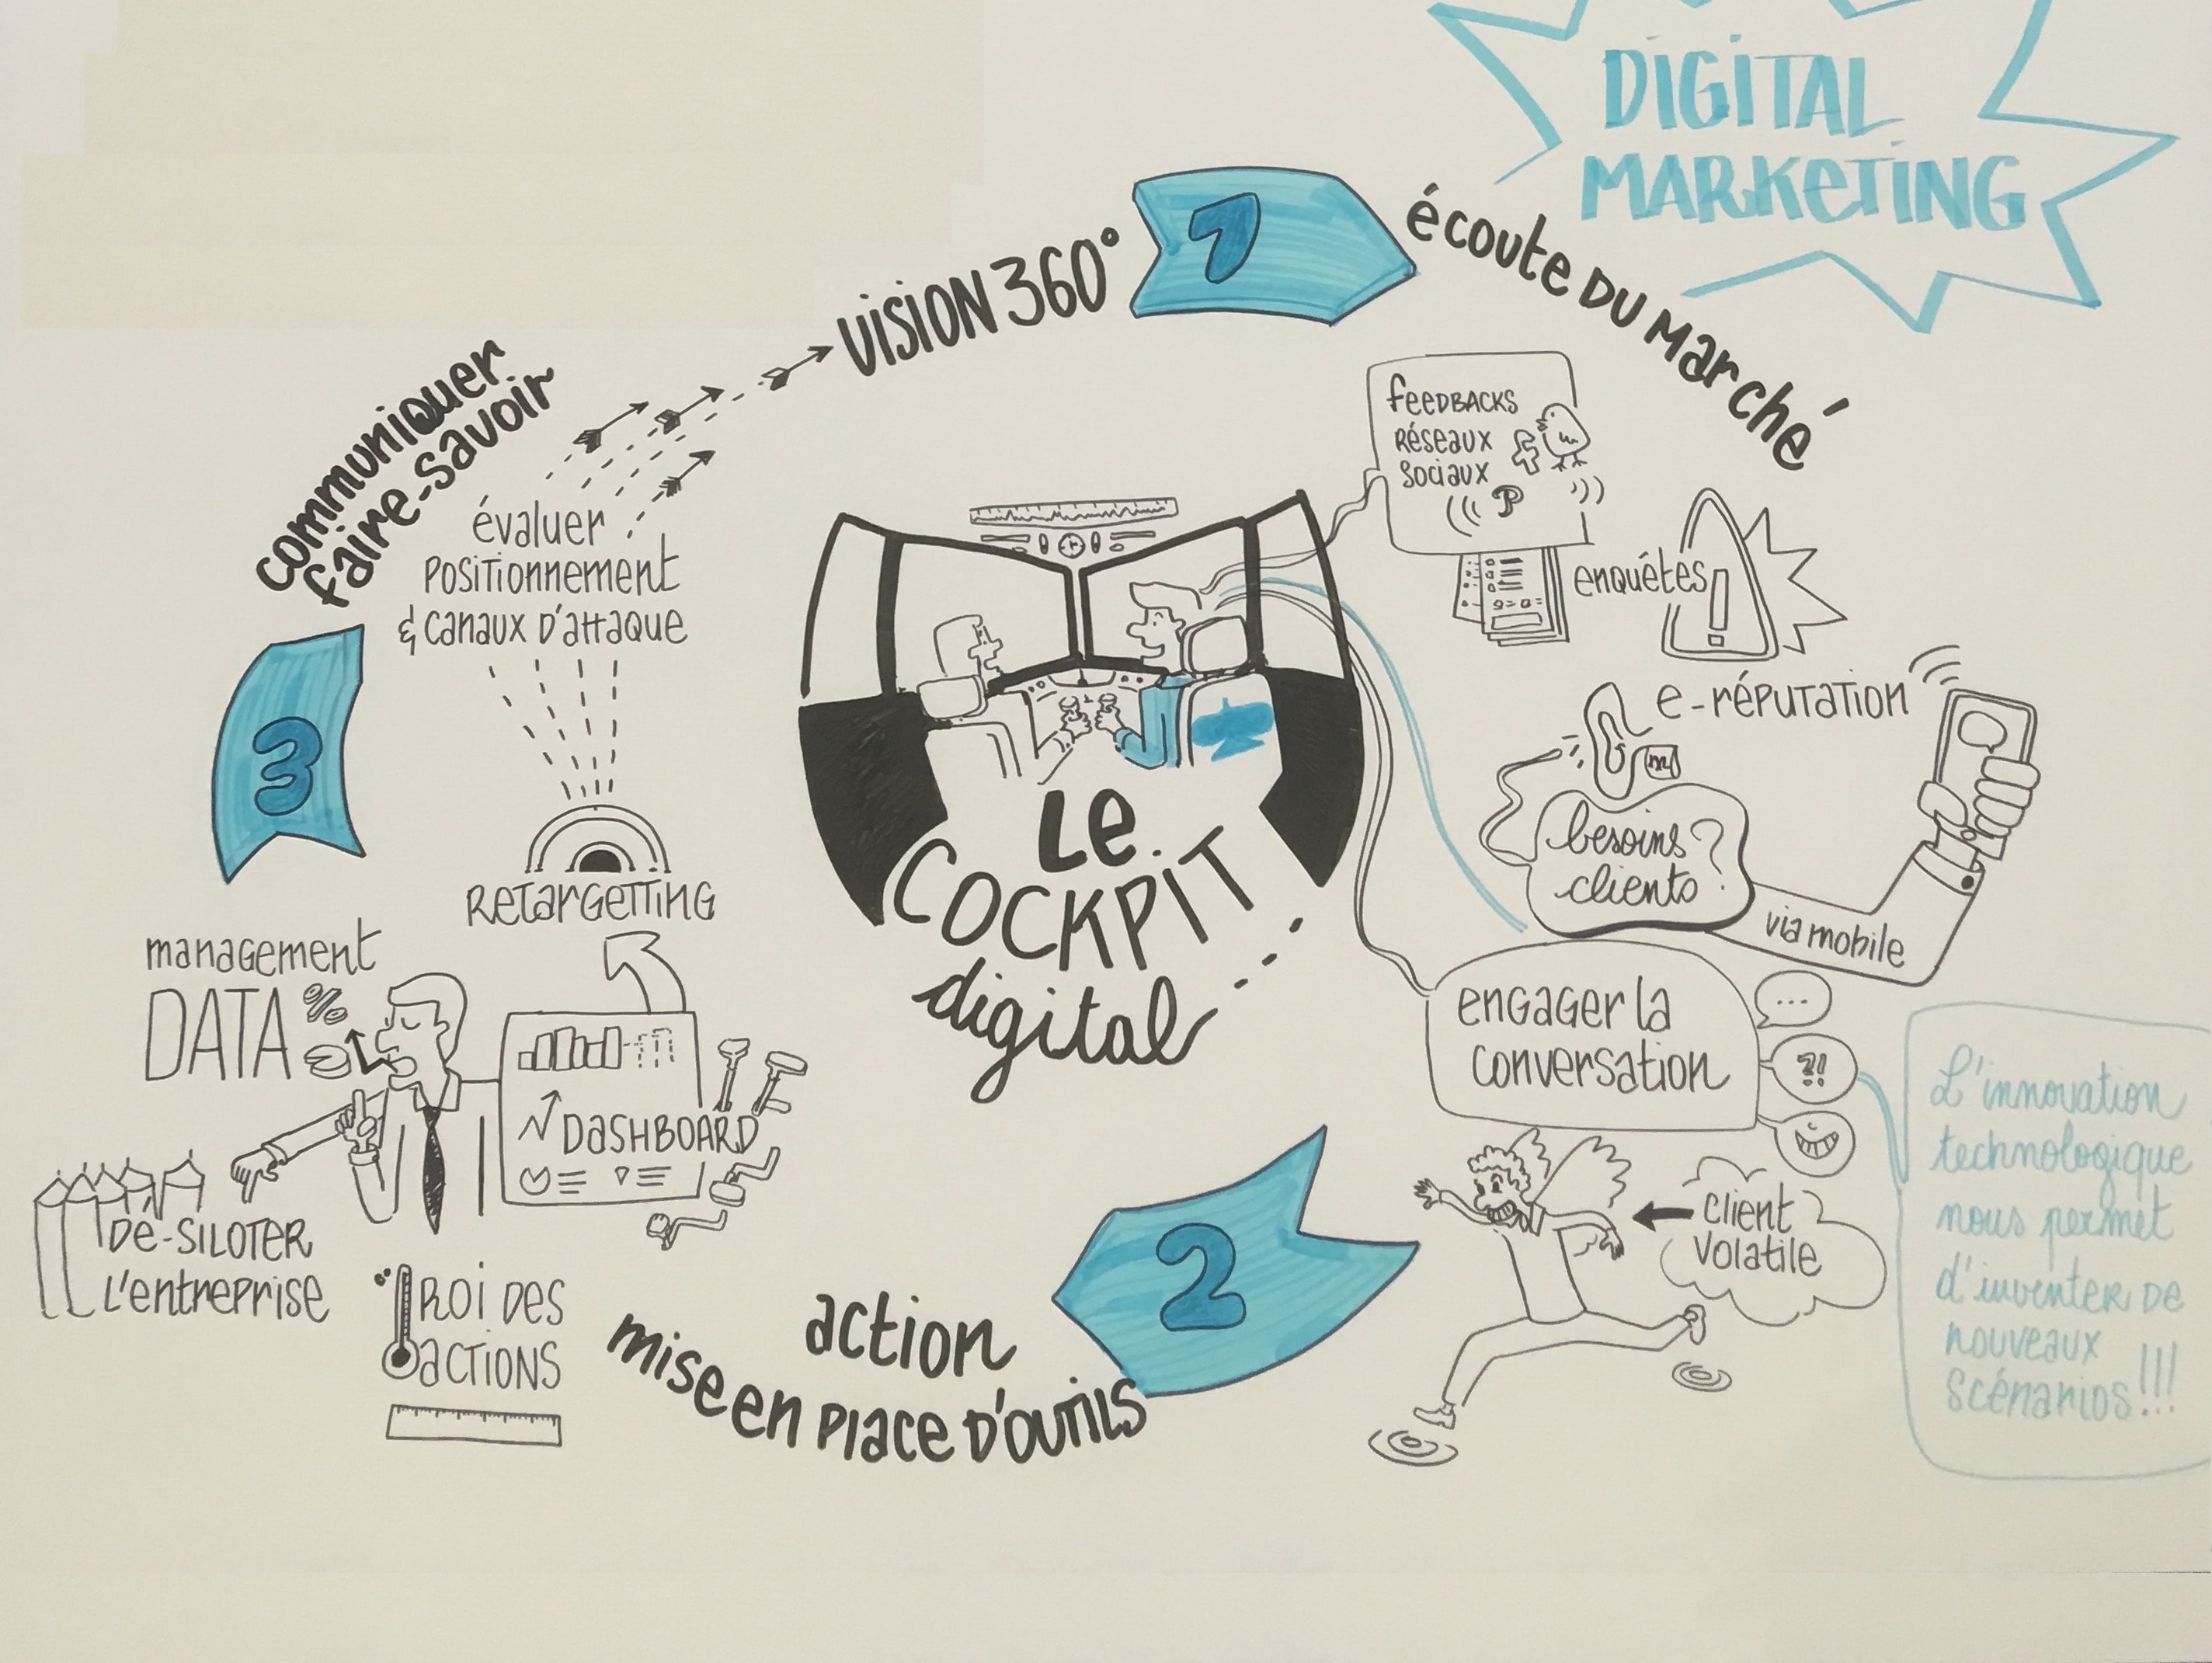 DIGITAL
MARKETING
1
VISION 360°
écoute DU Marché
FeeDBACKS
Réseaux
Sociaux
enquêtes
!
e-réputation
besoins
clients ?
via mobile
engager la
conversation
...
?!
client
volatile
L'innovation
technologique
nous permet
d'inventer DE
nouveaux
scénarios!!!
Le
COCKPIT
digital...
2
action
mise en place D'outils
management
DATA %
DASHBOARD
Dé-SILOTER
L'entreprise
ROI DES
actions
3
communiquer
faire-savoir
évaluer
Positionnement
& canaux D'attaque
RETARGETTING